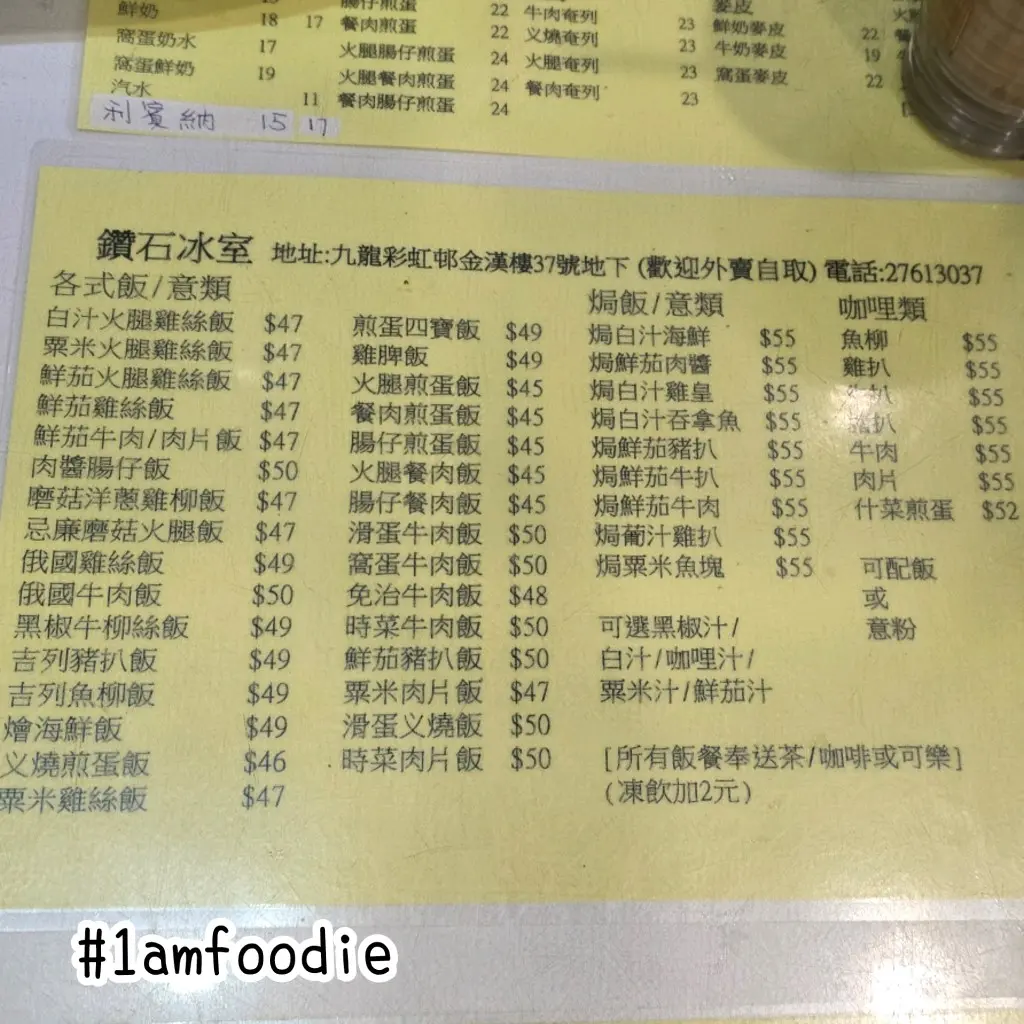 鮮奶 18 17
窩蛋奶水 17
窩蛋鮮奶 19
汽水 11
利賓納 15 17
腸仔煎蛋 22
餐肉煎蛋 22
火腿腸仔煎蛋 24
火腿餐肉煎蛋 24
餐肉腸仔煎蛋 24
牛肉奄列 23
义燒奄列 23
火腿奄列 23
餐肉奄列 23
麥皮
鮮奶麥皮 22
牛奶麥皮 19
窩蛋麥皮 22
鑽石冰室 地址:九龍彩虹邨金漢樓37號地下 (歡迎外賣自取) 電話:27613037
各式飯/意類
白汁火腿雞絲飯 $47
粟米火腿雞絲飯 $47
鮮茄火腿雞絲飯 $47
鮮茄雞絲飯 $47
鮮茄牛肉/肉片飯 $47
肉醬腸仔飯 $50
磨菇洋蔥雞柳飯 $47
忌廉磨菇火腿飯 $47
俄國雞絲飯 $49
俄國牛肉飯 $50
黑椒牛柳絲飯 $49
吉列豬扒飯 $49
吉列魚柳飯 $49
燴海鮮飯 $49
义燒煎蛋飯 $46
粟米雞絲飯 $47
煎蛋四寶飯 $49
雞脾飯 $49
火腿煎蛋飯 $45
餐肉煎蛋飯 $45
腸仔煎蛋飯 $45
火腿餐肉飯 $45
腸仔餐肉飯 $45
滑蛋牛肉飯 $50
窩蛋牛肉飯 $50
免治牛肉飯 $48
時菜牛肉飯 $50
鮮茄豬扒飯 $50
粟米肉片飯 $47
滑蛋义燒飯 $50
時菜肉片飯 $50
焗飯/意類
焗白汁海鮮 $55
焗鮮茄肉醬 $55
焗白汁雞皇 $55
焗白汁吞拿魚 $55
焗鮮茄豬扒 $55
焗鮮茄牛扒 $55
焗鮮茄牛肉 $55
焗葡汁雞扒 $55
焗粟米魚塊 $55
可選黑椒汁/
白汁/咖哩汁/
粟米汁/鮮茄汁
咖哩類
魚柳 $55
雞扒 $55
扒 $55
扒 $55
牛肉 $55
肉片 $55
什菜煎蛋 $52
可配飯
或
意粉
[所有飯餐奉送茶/咖啡或可樂]
(凍飲加2元)
#1amfoodie